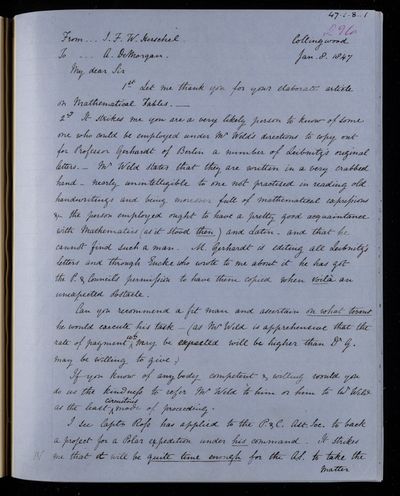 47-1-8-1
296
From... J. F. W. Herschel. Collingwood
To... A. DeMorgan. Jan. 8. 1847
My dear Sir
1st Let me thank you for your elaborate article
on Mathematical Tables. —
2nd It strikes me you are a very likely person to know of some
one who could be employed under Mr Weld's directions to copy out
for Professor Gerhardt of Berlin a number of Leibnitz's original
letters. — Mr Weld states that they are written in a very crabbed
hand — nearly unintelligible to one not practised in reading old
handwritings and being moreover full of mathematical expressions
&c the person employed ought to have a pretty good acquaintance
with Mathematics (as it stood then) and Latin — and that he
cannot find such a man. M. Gerhardt is editing all Leibnitz's
letters and through Encke who wrote to me about it he has got
the P. & Council's permission to have them copied when voilà an
unexpected obstacle.
Can you recommend a fit man and ascertain on what terms
he would execute his task — (as Mr Weld is apprehensive that the
rate of payment wh may be expected will be higher than Dr G.
may be willing to give)
If you know of anybody competent & willing would you
do us the kindness to refer Mr Weld to him or him to Mr Weld
as the least circuitous mode of proceeding.
I see Captn Ross has applied to the P. & C. Ast. Soc. to back
a project for a Polar expedition under his command — It strikes
me that it will be quite time enough for the A.S. to take the
matter